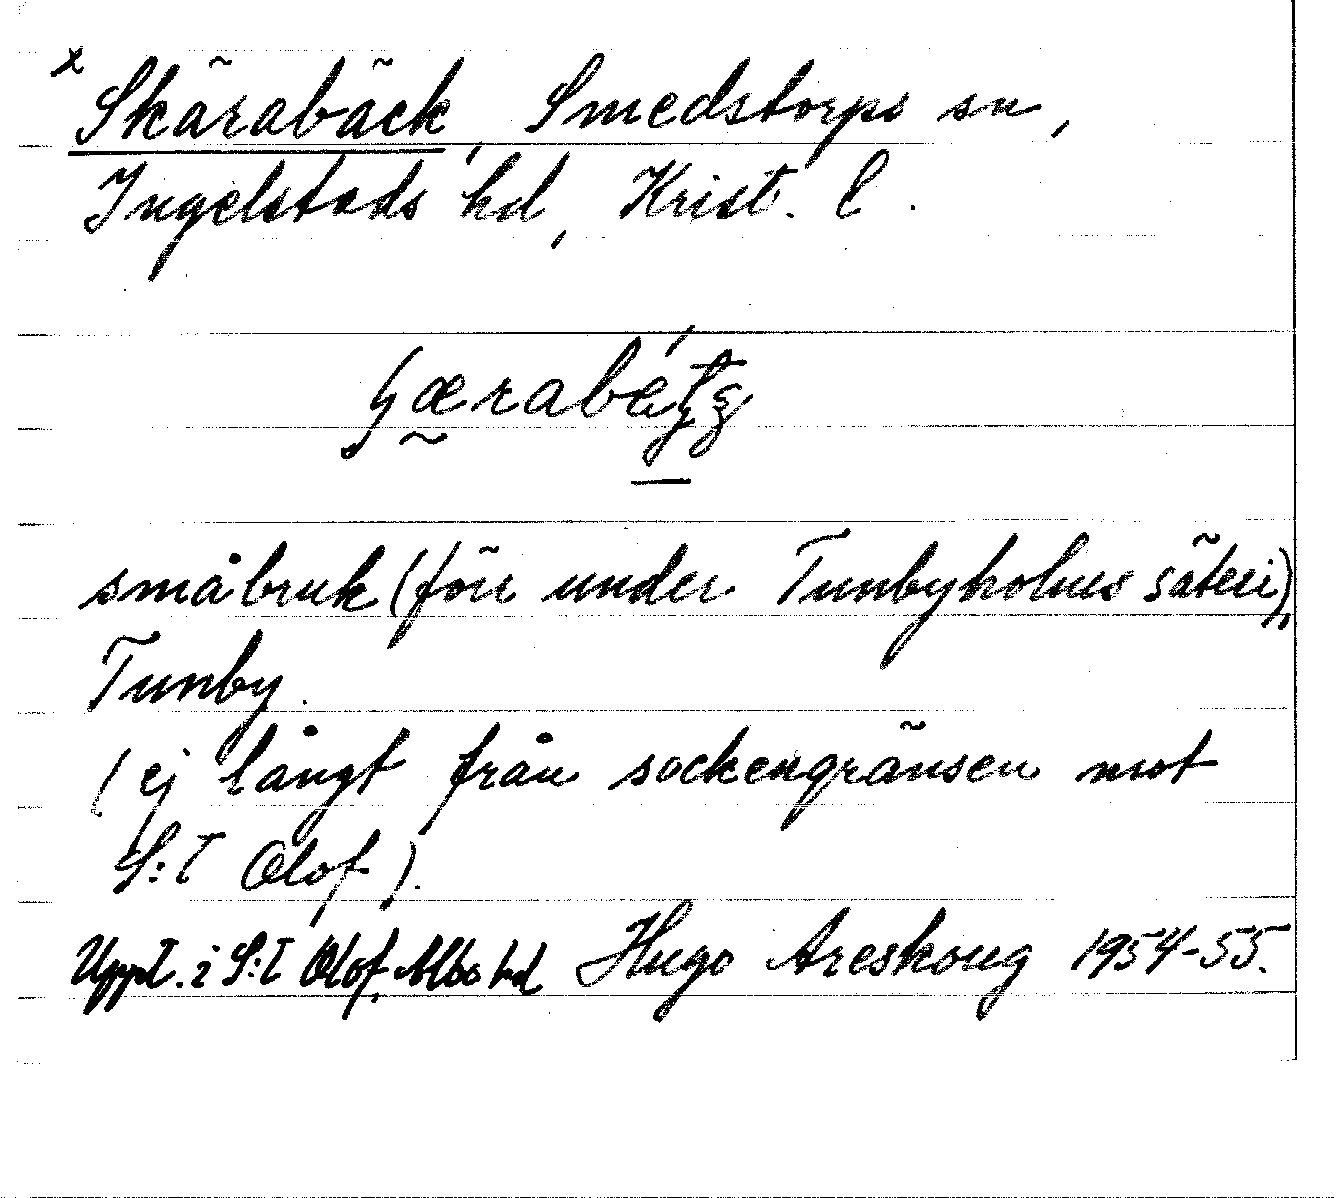 x Skärabäck, Smedstorps sn,
Ingelstads hd, Krist. l.
småbruk (förr under Tunbyholms säteri),
Tunby.
(ej långt från sockengränsen mot
S:t Olof).
Uppt. i S:t Olof, Albo hd Hugo Areskoug 1954-55.